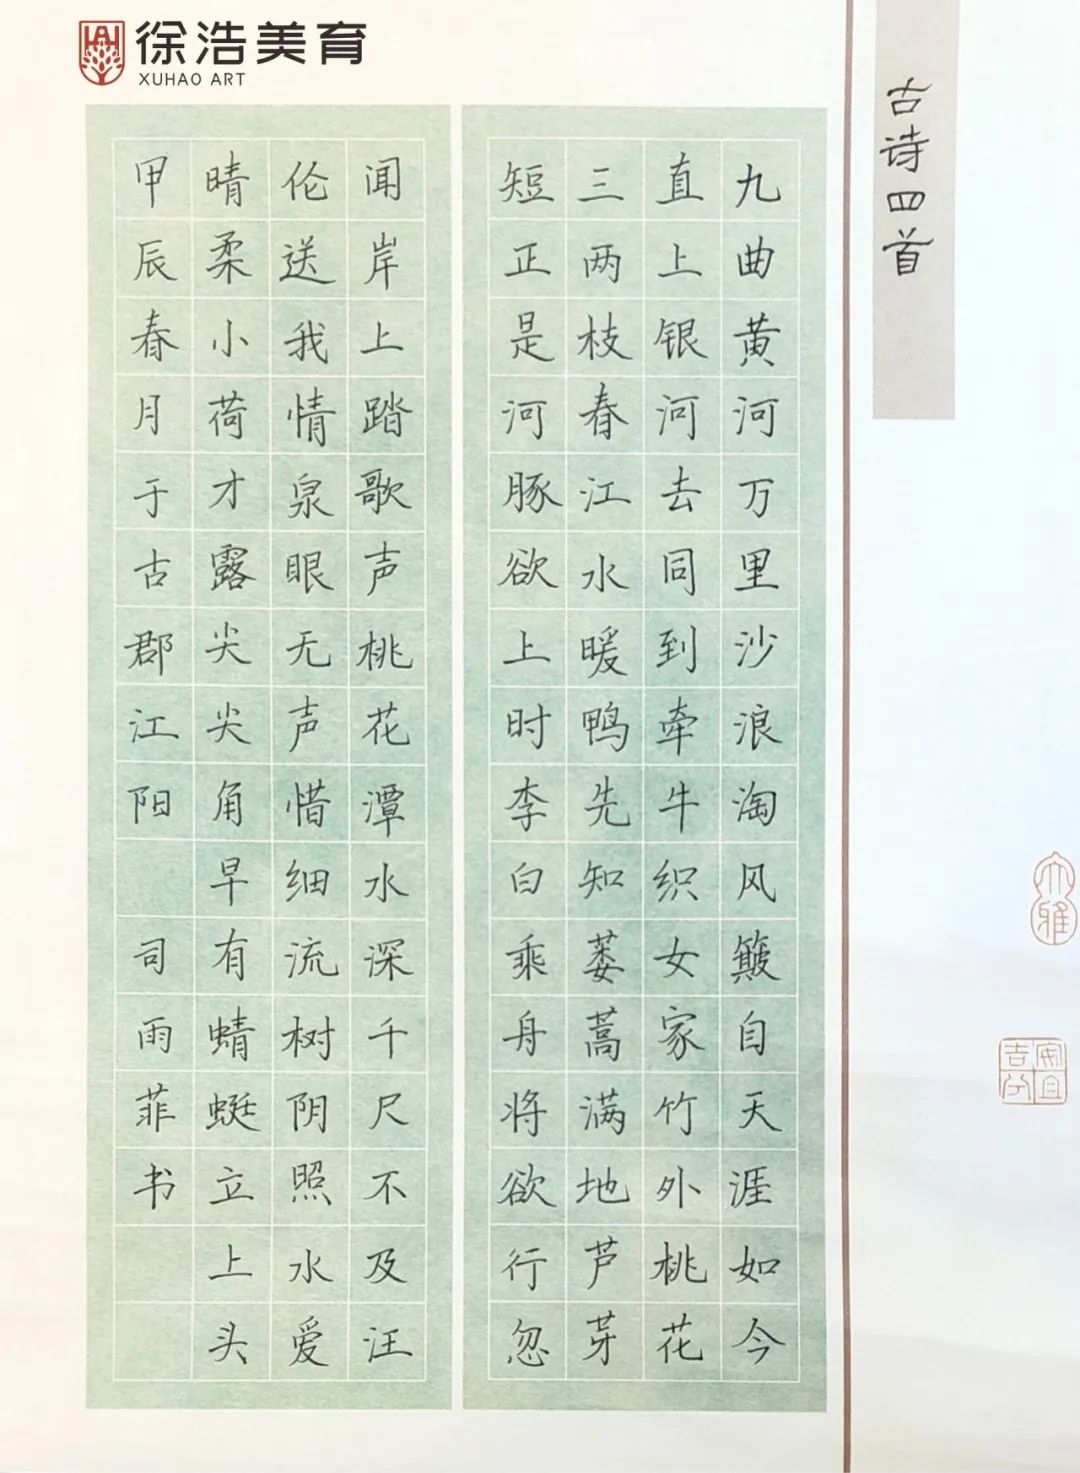 徐浩美育
XUHAO ART
古诗四首
九曲黄河万里沙浪淘风簸自天涯如今
直上银河去同到牵牛织女家竹外桃花
三两枝春江水暖鸭先知蒌蒿满地芦芽
短正是河豚欲上时李白乘舟将欲行忽
闻岸上踏歌声桃花潭水深千尺不及汪
伦送我情泉眼无声惜细流树阴照水爱
晴柔小荷才露尖尖角早有蜻蜓立上头
甲辰春月于古郡江阳 司雨菲书
大雅